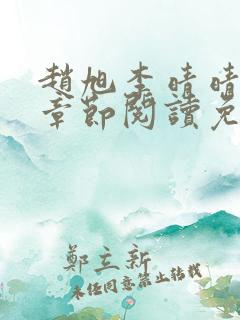 趙旭李晴晴
章節閱讀免
鄭立新
未經同意禁止轉載